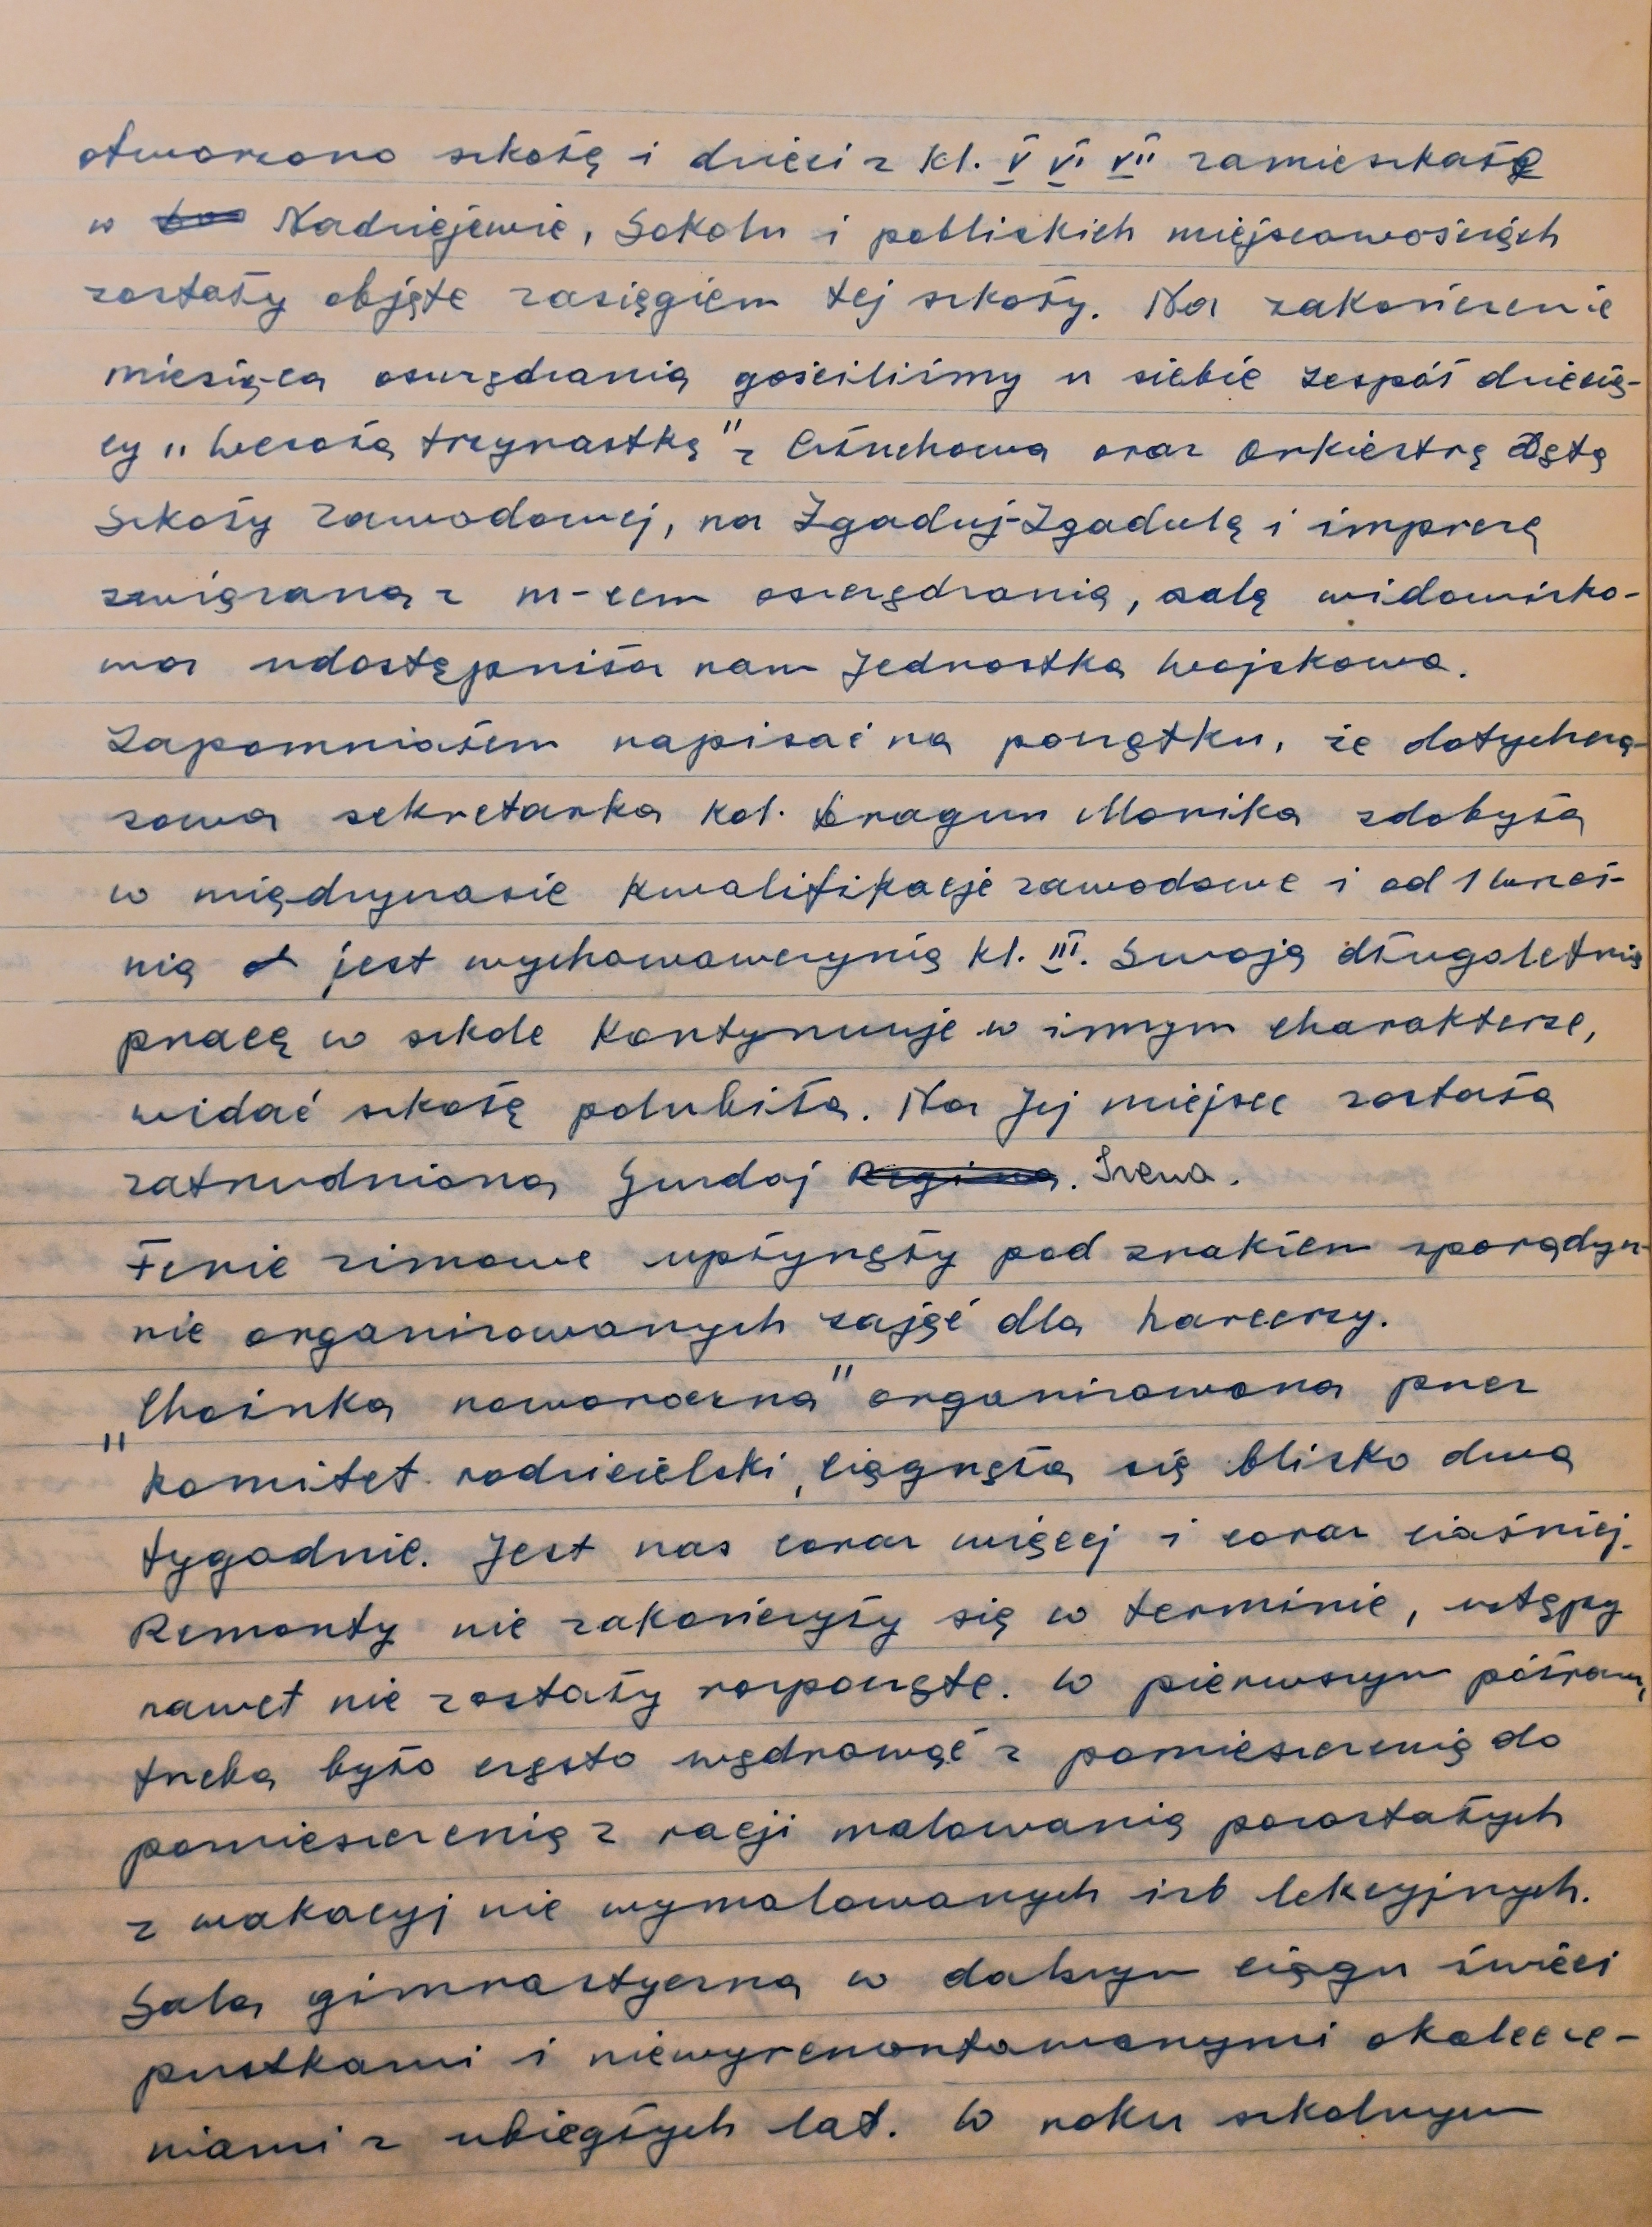 otworzono szkołę i dzieci z kl. V VI VII zamieszkałe
w Nadziejewie, Sokolu i pobliskich miejscowościach
zostały objęte zasięgiem tej szkoły. Na zakończenie
miesiąca oszczędzania gościliśmy u siebie zespół dziecię-
cy „Wesoła trzynastka" z Człuchowa oraz Orkiestrę Dętą
Szkoły zawodowej, na Zgaduj-Zgadulę i imprezę
związaną z m-cem oszczędzania, salę widowisko-
wą udostępniła nam Jednostka Wojskowa.
Zapomniałem napisać na początku, że dotychcza-
sowa sekretarka kol. Dragun Monika zdobyła
w międzyczasie kwalifikacje zawodowe i od 1 wrześ-
nia jest wychowawczynią kl. III. Swoją długoletnią
pracę w szkole kontynuuje w innym charakterze,
widać szkołę polubiła. Na Jej miejsce została
zatrudniona Gurdaj ~~Regina~~. Irena.
Ferie zimowe upłynęły pod znakiem sporadycz-
nie organizowanych zajęć dla harcerzy.
„Choinka noworoczna" organizowana przez
komitet rodzicielski, ciągnęła się blisko dwa
tygodnie. Jest nas coraz więcej i coraz ciaśniej.
Remonty nie zakończyły się w terminie, ustępy
nawet nie zostały rozpoczęte. W pierwszym półroczu,
trzeba było często wędrować z pomieszczenia do
pomieszczenia z racji malowania pozostałych
z wakacyj nie wymalowanych izb lekcyjnych.
Sala gimnastyczna w dalszym ciągu świeci
pustkami i niewyremontowanymi okalecze-
niami z ubiegłych lat. W roku szkolnym